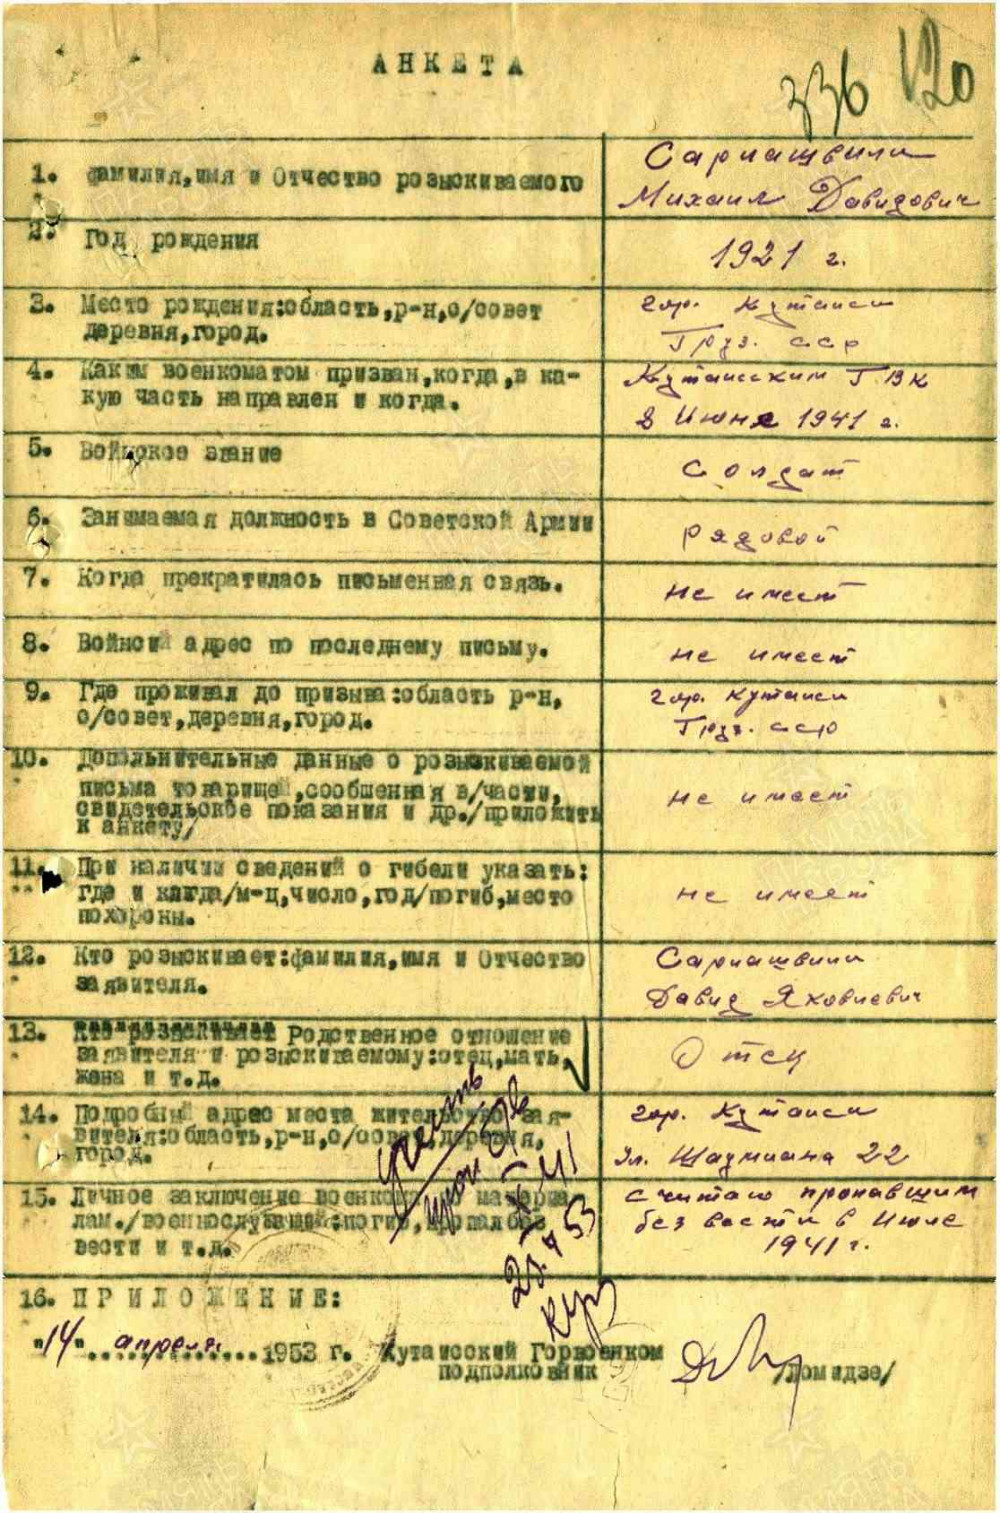 АНКЕТА
336 120
1. Фамилия,имя и Отчество розыскиваемого
Сариашвили
Михаил Давидович
2. Год рождения
1921 г.
3. Место рождения:область,р-н,с/совет
деревня,город.
гор. Кутаиси
Груз. сср
4. Каким военкоматом призван,когда,в ка-
кую часть направлен и когда.
Кутаисским Г.В.К
в Июне 1941 г.
5. Войнокое звание
Солдат
6. Занимаемая должность в Советской Армии
рядовой
7. Когда прекратилась письменная связь.
не имеет
8. Войнский адрес по последнему письму.
не имеет
9. Где проживал до призыва:область р-н,
с/совет,деревня,город.
гор. Кутаиси
Груз. сср
10. Допольнительные данные о розыскиваемой
письма товарищей,сообшенная в/части,
свидетельское показания и др./приложить
к анкету/
не имеет
11. При наличии сведений о гибели указать:
где и кагда/м-ц,число,год/погиб,место
похороны.
не имеет
12. Кто розыскивает:фамилия,имя и Отчество
заявителя.
Сариашвили
Давид Яковлевич
13. Родственное отношение
заявителя и розыскиваемому:отец,мать,
жена и т.д.
Отец
14. Подробный адрес места жительство зая-
вителя:область,р-н,с/совет,деревня,
город.
гор. Кутаиси
Ул. Шаумиана 22
15. Личное заключение военкома материа
лам./военнослужащий:погиб,пропал без
вести и т.д.
считаю пропавшим
без вести в Июле
1941 г.
16. ПРИЛОЖЕНИЕ:
"14" апреля 1953 г. Кутаисский Горвоенком
подполковник /Ломидзе/